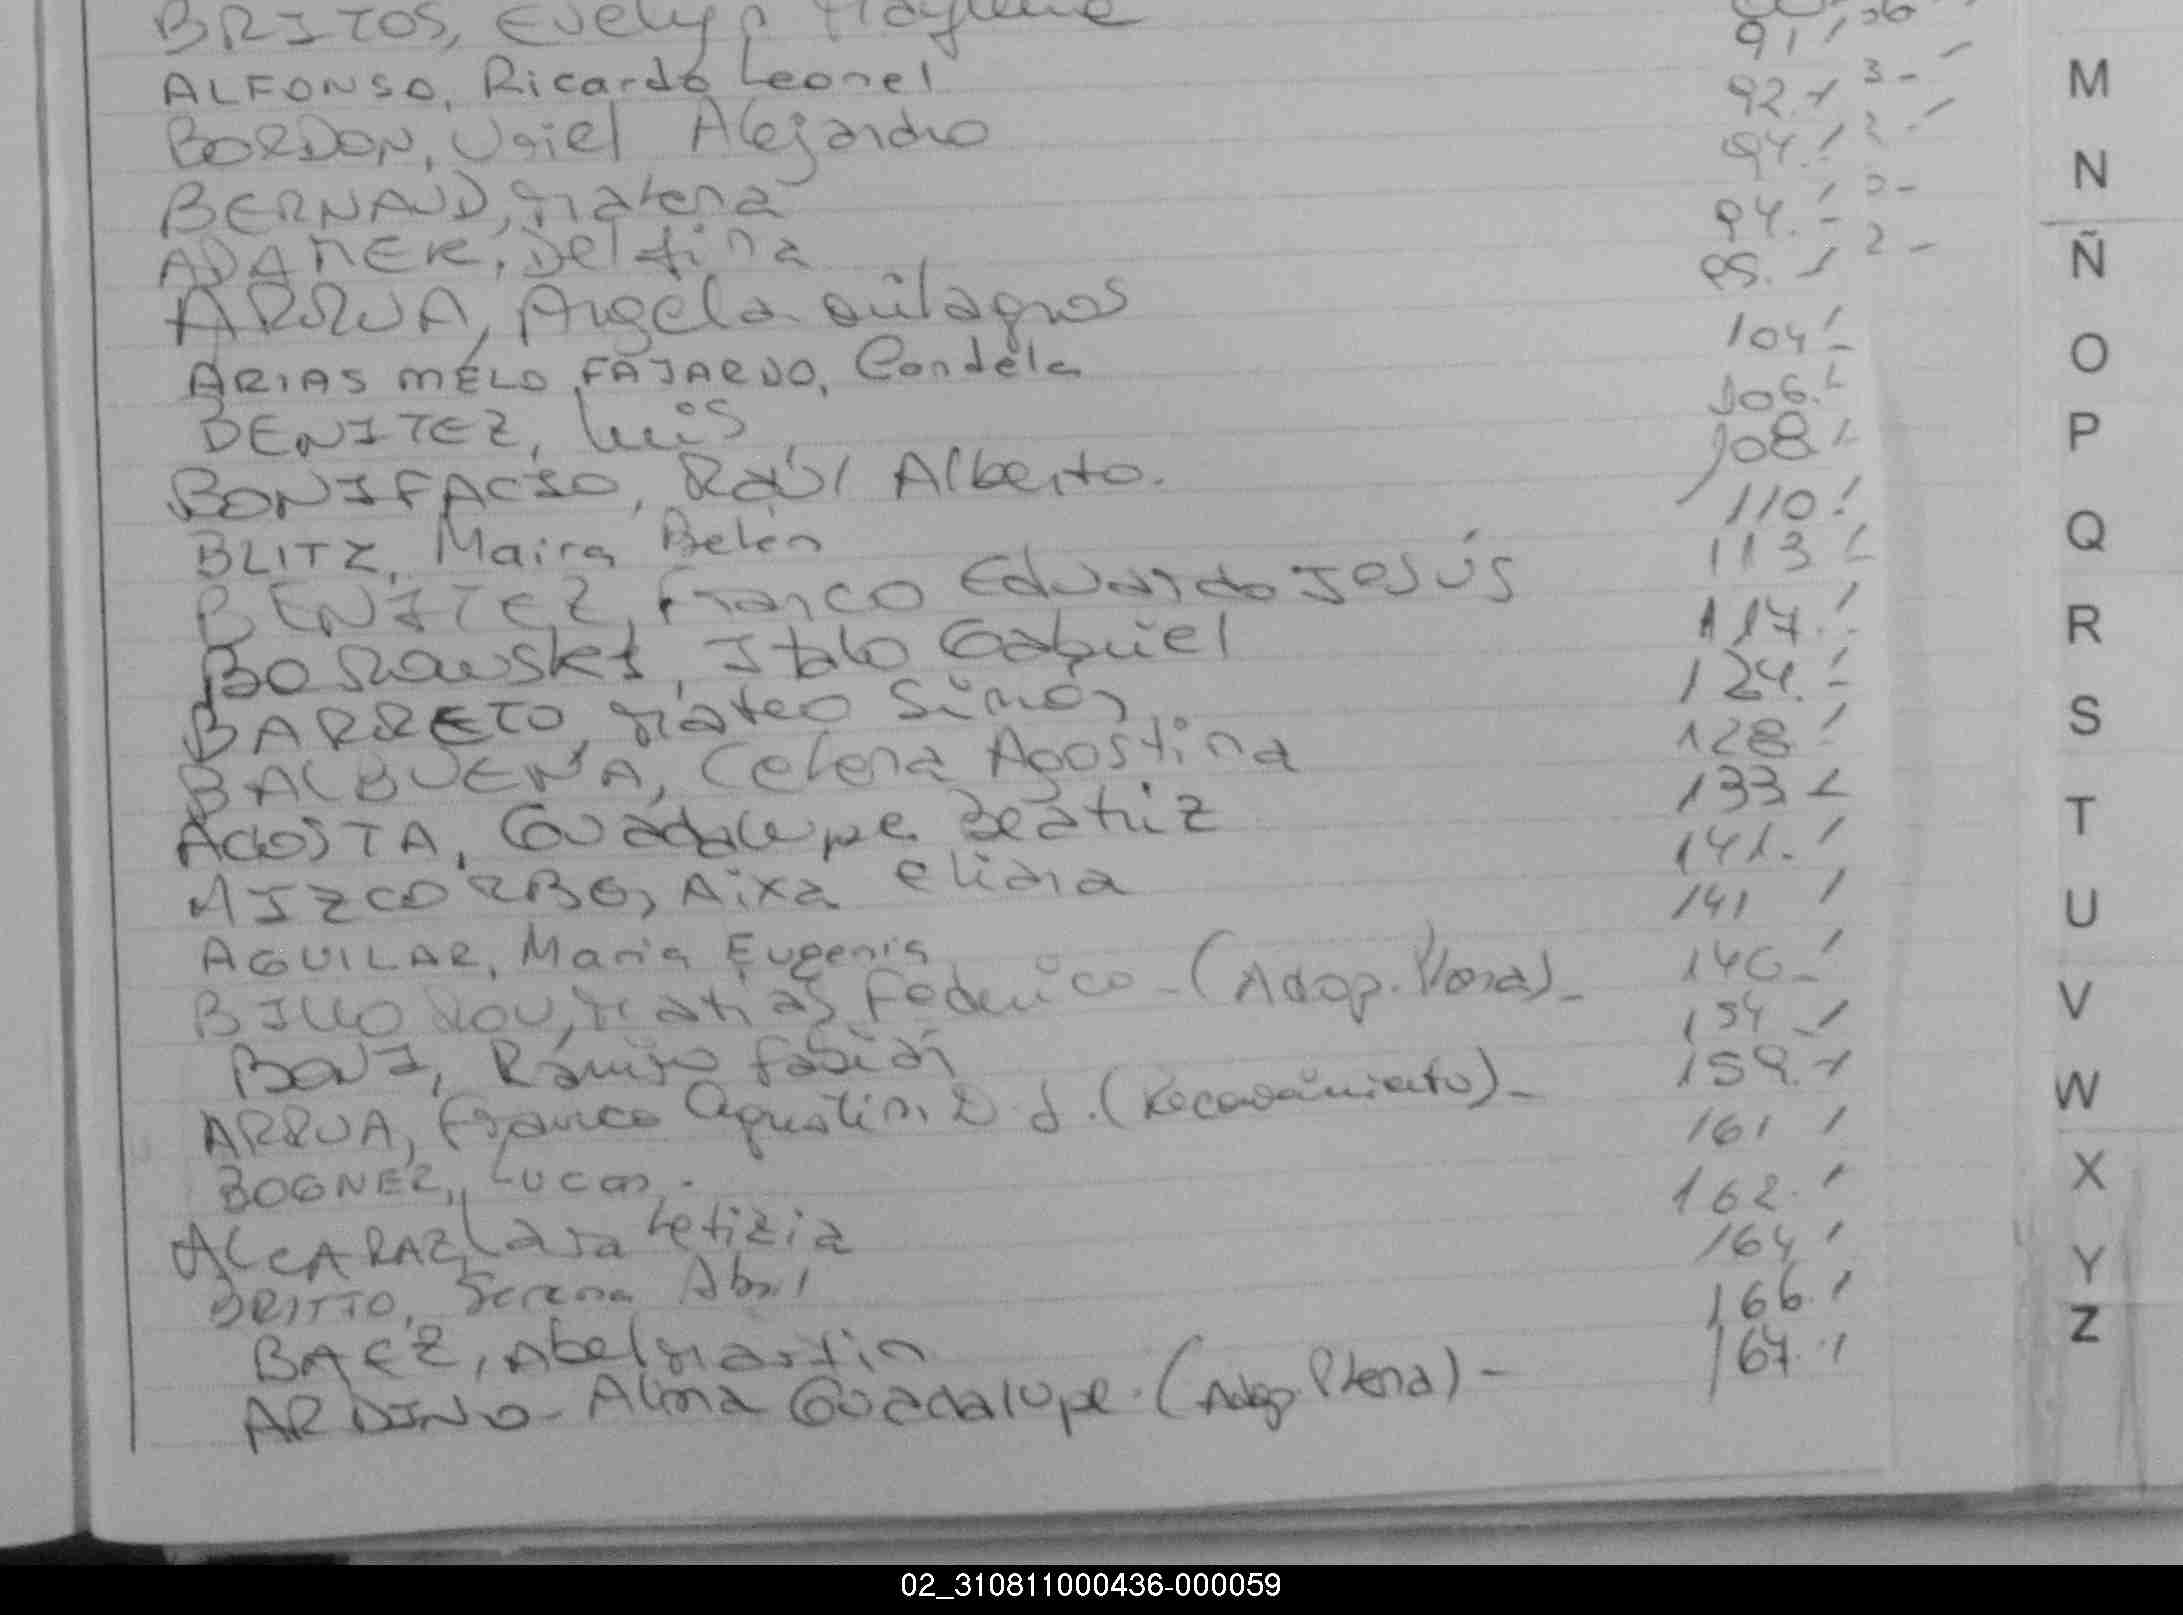 BRITOS, Evelyn Maylene
ALFONSO, Ricardo Leonel 91.
BORDON, Uriel Alejandro 92. 3-
BERNAUD, Malena 94. 2.
ADAMEK, Delfina 94.
ARRUA, Angela Milagros 95. 2-
ARIAS MELO FAJARDO, Candela 104
BENITEZ, Luis 106.
BONIFACIO, Raúl Alberto. 108
BLITZ, Maira Belén 110
BENITEZ, Franco Eduardo Jesús 113
BOROWSKI, Italo Gabriel 117.
BARRETO, Mateo Simón 124.
BALBUENA, Celena Agostina 128
ACOSTA, Guadalupe Beatriz 133
AIZCORBE, Aixa Eliana 141.
AGUILAR, Maria Eugenia 141
Matias Federico - (Adop. Plena)- 146-
BONI, Ramiro Fabián 154
ARRUA, Franco Agustin D. J. (Reconocimiento)- 159.
BOGNER, Lucas. 161
ALCARAZ, Lara Letizia 162.
BRITTO, Serena Abril 164
BAEZ, Abel Martin 166.
ARDINO- Alma Guadalupe. (Adop. Plena)- 167.
M
N
Ñ
O
P
Q
R
S
T
U
V
W
X
Y
Z
02_310811000436-000059